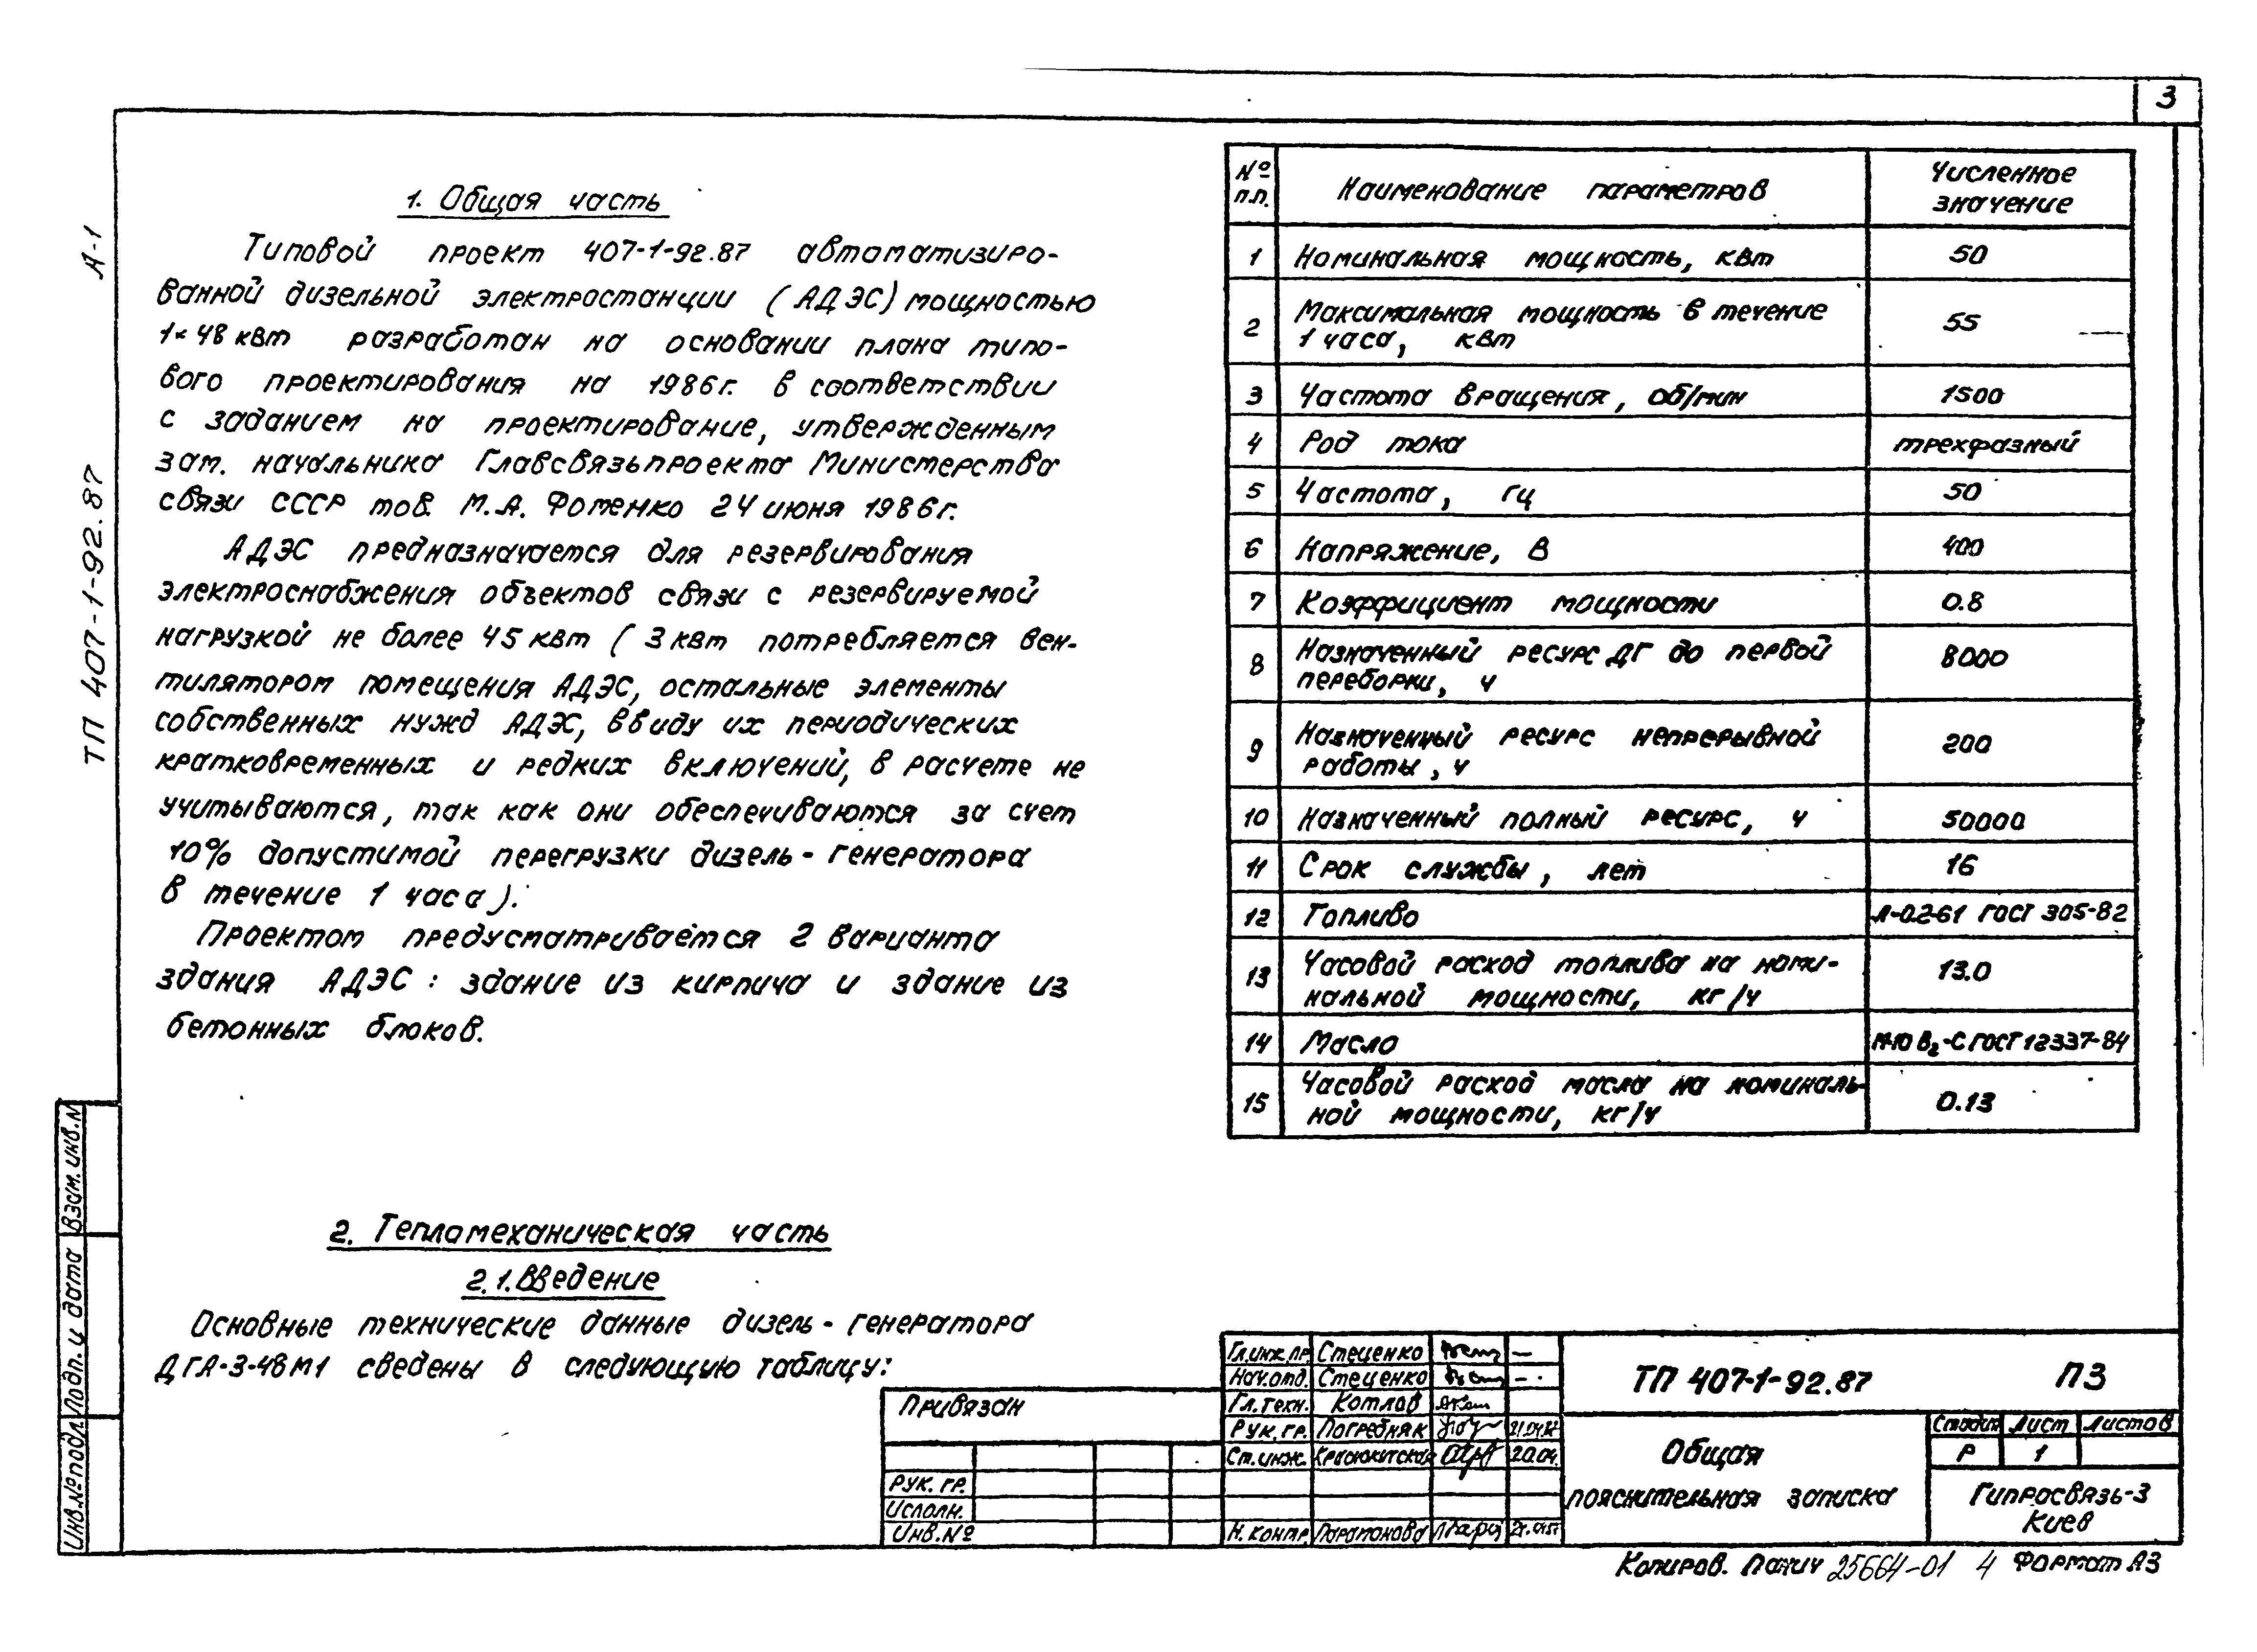 3
А-1
ТП 407-1-92.87
1. Общая часть
Типовой проект 407-1-92.87 автоматизиро-
ванной дизельной электростанции (АДЭС) мощностью
1×48 квт разработан на основании плана типо-
вого проектирования на 1986г. в соответствии
с заданием на проектирование, утвержденным
зам. начальника Главсвязьпроекта Министерства
связи СССР тов. М.А. Фоменко 24 июня 1986г.
АДЭС предназначается для резервирования
электроснабжения объектов связи с резервируемой
нагрузкой не более 45 квт ( 3 квт потребляется вен-
тилятором помещения АДЭС, остальные элементы
собственных нужд АДЭС, ввиду их периодических
кратковременных и редких включений, в расчете не
учитываются, так как они обеспечиваются за счет
10% допустимой перегрузки дизель-генератора
в течение 1 часа).
Проектом предусматривается 2 варианта
здания АДЭС: здание из кирпича и здание из
бетонных блоков.
2. Тепломеханическая часть
2.1. Введение
Основные технические данные дизель-генератора
ДГА-3-48М1 сведены в следующую таблицу:
№ п.п. Наименование параметров Численное значение
1 Номинальная мощность, квт 50
2 Максимальная мощность в течение 1 часа, квт 55
3 Частота вращения, об/мин 1500
4 Род тока трехфазный
5 Частота, гц 50
6 Напряжение, В 400
7 Коэффициент мощности 0.8
8 Назначенный ресурс ДГ до первой переборки, ч 8000
9 Назначенный ресурс непрерывной работы, ч 200
10 Назначенный полный ресурс, ч 50000
11 Срок службы, лет 16
12 Топливо Л-0.2-61 ГОСТ 305-82
13 Часовой расход топлива на номи-
нальной мощности, кг/ч 13.0
14 Масло М-10 В2-С ГОСТ 12337-84
15 Часовой расход масла на номиналь-
ной мощности, кг/ч 0.13
Взам. инв. N
Подп. и дата
Инв. № подл.
Привязан
Рук. гр.
Исполн.
Инв. №
Гл. инж. пр. Стеценко —
Нач. отд. Стеценко —
Гл. техн. Котлов
Рук. гр. Погребняк
Ст. инж. 20.04.
Н. контр.
ТП 407-1-92.87 ПЗ
Общая
пояснительная записка
Стадия Лист Листов
Р 1
Гипросвязь-3
Киев
Копиров. Панич 25664-01 4 Формат А3